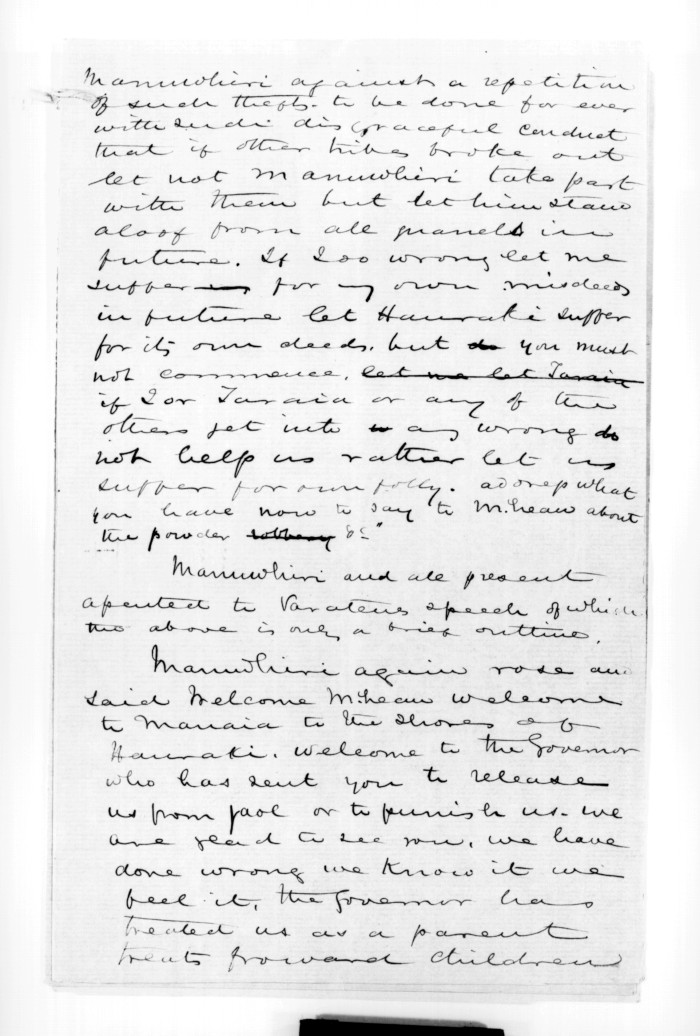 Manuwhiri against a repetition
of such thefts. to be done for ever
with such disgraceful conduct
that if other tribes broke out
let not Manuwhiri take part
with them but let him stand
aloof from all quarrels in
future. If I do wrong let me
suffer for my own misdeeds
in future let Hauraki suffer
for its own deeds. but do you must
not commence. let me let Taraia
if I or Taraia or any of the
others get into any wrong do
not help us rather let us
suffer for own folly. what
you have now to say to McLean about
the powder robbery &c"
Manuwhiri and all present
assented to speech of which
the above is only a brief outline.
Manuwhiri again rose and
said Welcome McLean welcome
to Manaia to the shores of
Hauraki. welcome to the Governor
who has sent you to release
us from gaol or to punish us. we
are glad to see you, we have
done wrong we know it we
feel it, the Governor has
treated us as a parent
treats froward children